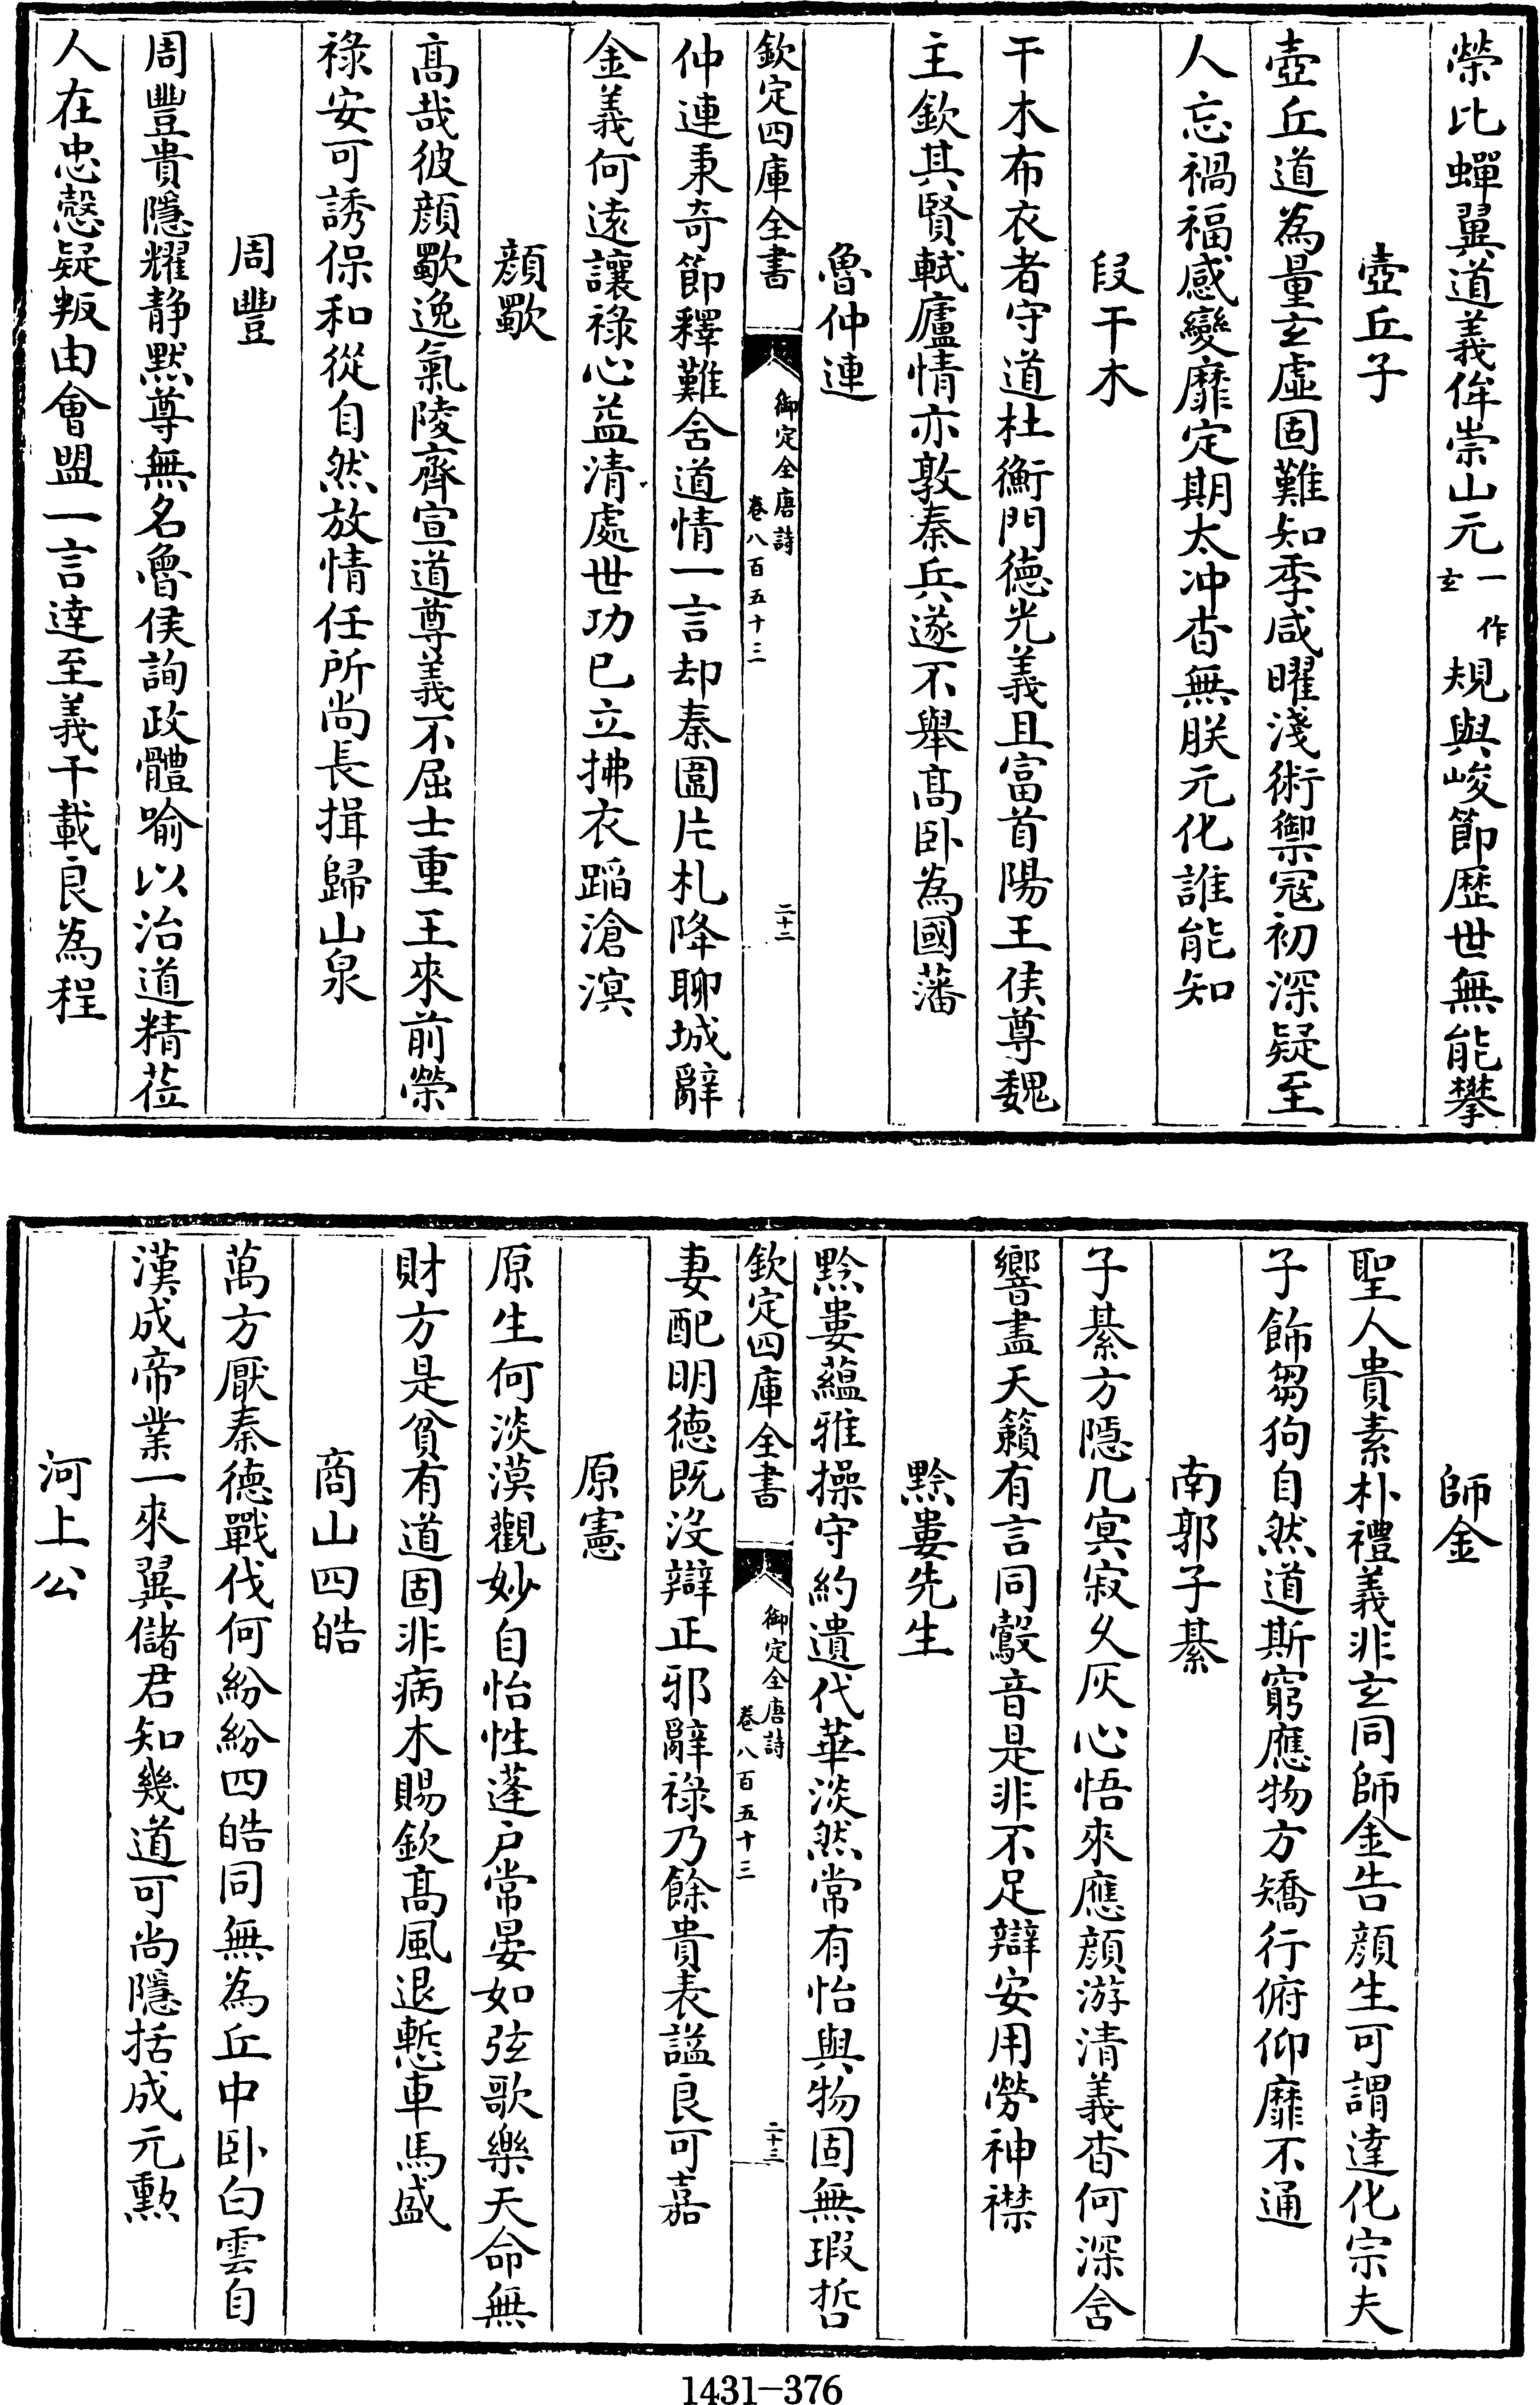 榮比蟬翼道義侔崇山元一作玄規與峻節歷世無能攀
壺丘子
壺丘道為量玄虛固難知季咸曜淺術禦寇初深疑至
人忘禍福感變靡定期太沖杳無朕元化誰能知
段干木
干木布衣者守道杜衡門德光義且富首陽王侯尊魏
主欽其賢軾廬情亦敦秦兵遂不舉髙卧為國藩
魯仲連
欽定四庫全書
御定全唐詩
卷八百五十三
二十二
仲連秉奇節釋難含道情一言却秦圍片札降聊城辭
金義何遠讓祿心益清處世功已立拂衣蹈滄溟
顔歜
髙哉彼顔歜逸氣陵齊宣道尊義不屈士重王來前榮
祿安可誘保和從自然放情任所尚長揖歸山泉
周豐
周豐貴隱耀静黙尊無名魯侯詢政體喻以治道精莅
人在忠慤疑叛由會盟一言達至義千載良為程
師金
聖人貴素朴禮義非玄同師金告顔生可謂達化宗夫
子飾芻狗自然道斯窮應物方矯行俯仰靡不通
南郭子綦
子綦方隱几冥寂久灰心悟來應顔游清義杳何深含
響盡天籟有言同鷇音是非不足辯安用勞神襟
黔婁先生
黔婁蘊雅操守約遺代華淡然常有怡與物固無瑕哲
欽定四庫全書
御定全唐詩
卷八百五十三
二十三
妻配明德既沒辯正邪辭祿乃餘貴表謚良可嘉
原憲
原生何淡漠觀妙自怡性蓬户常晏如弦歌樂天命無
財方是貧有道固非病木賜欽髙風退慙車馬盛
商山四皓
萬方厭秦德戰伐何紛紛四皓同無為丘中卧白雲自
漢成帝業一來翼儲君知幾道可尚隱括成元勲
河上公
1431-376